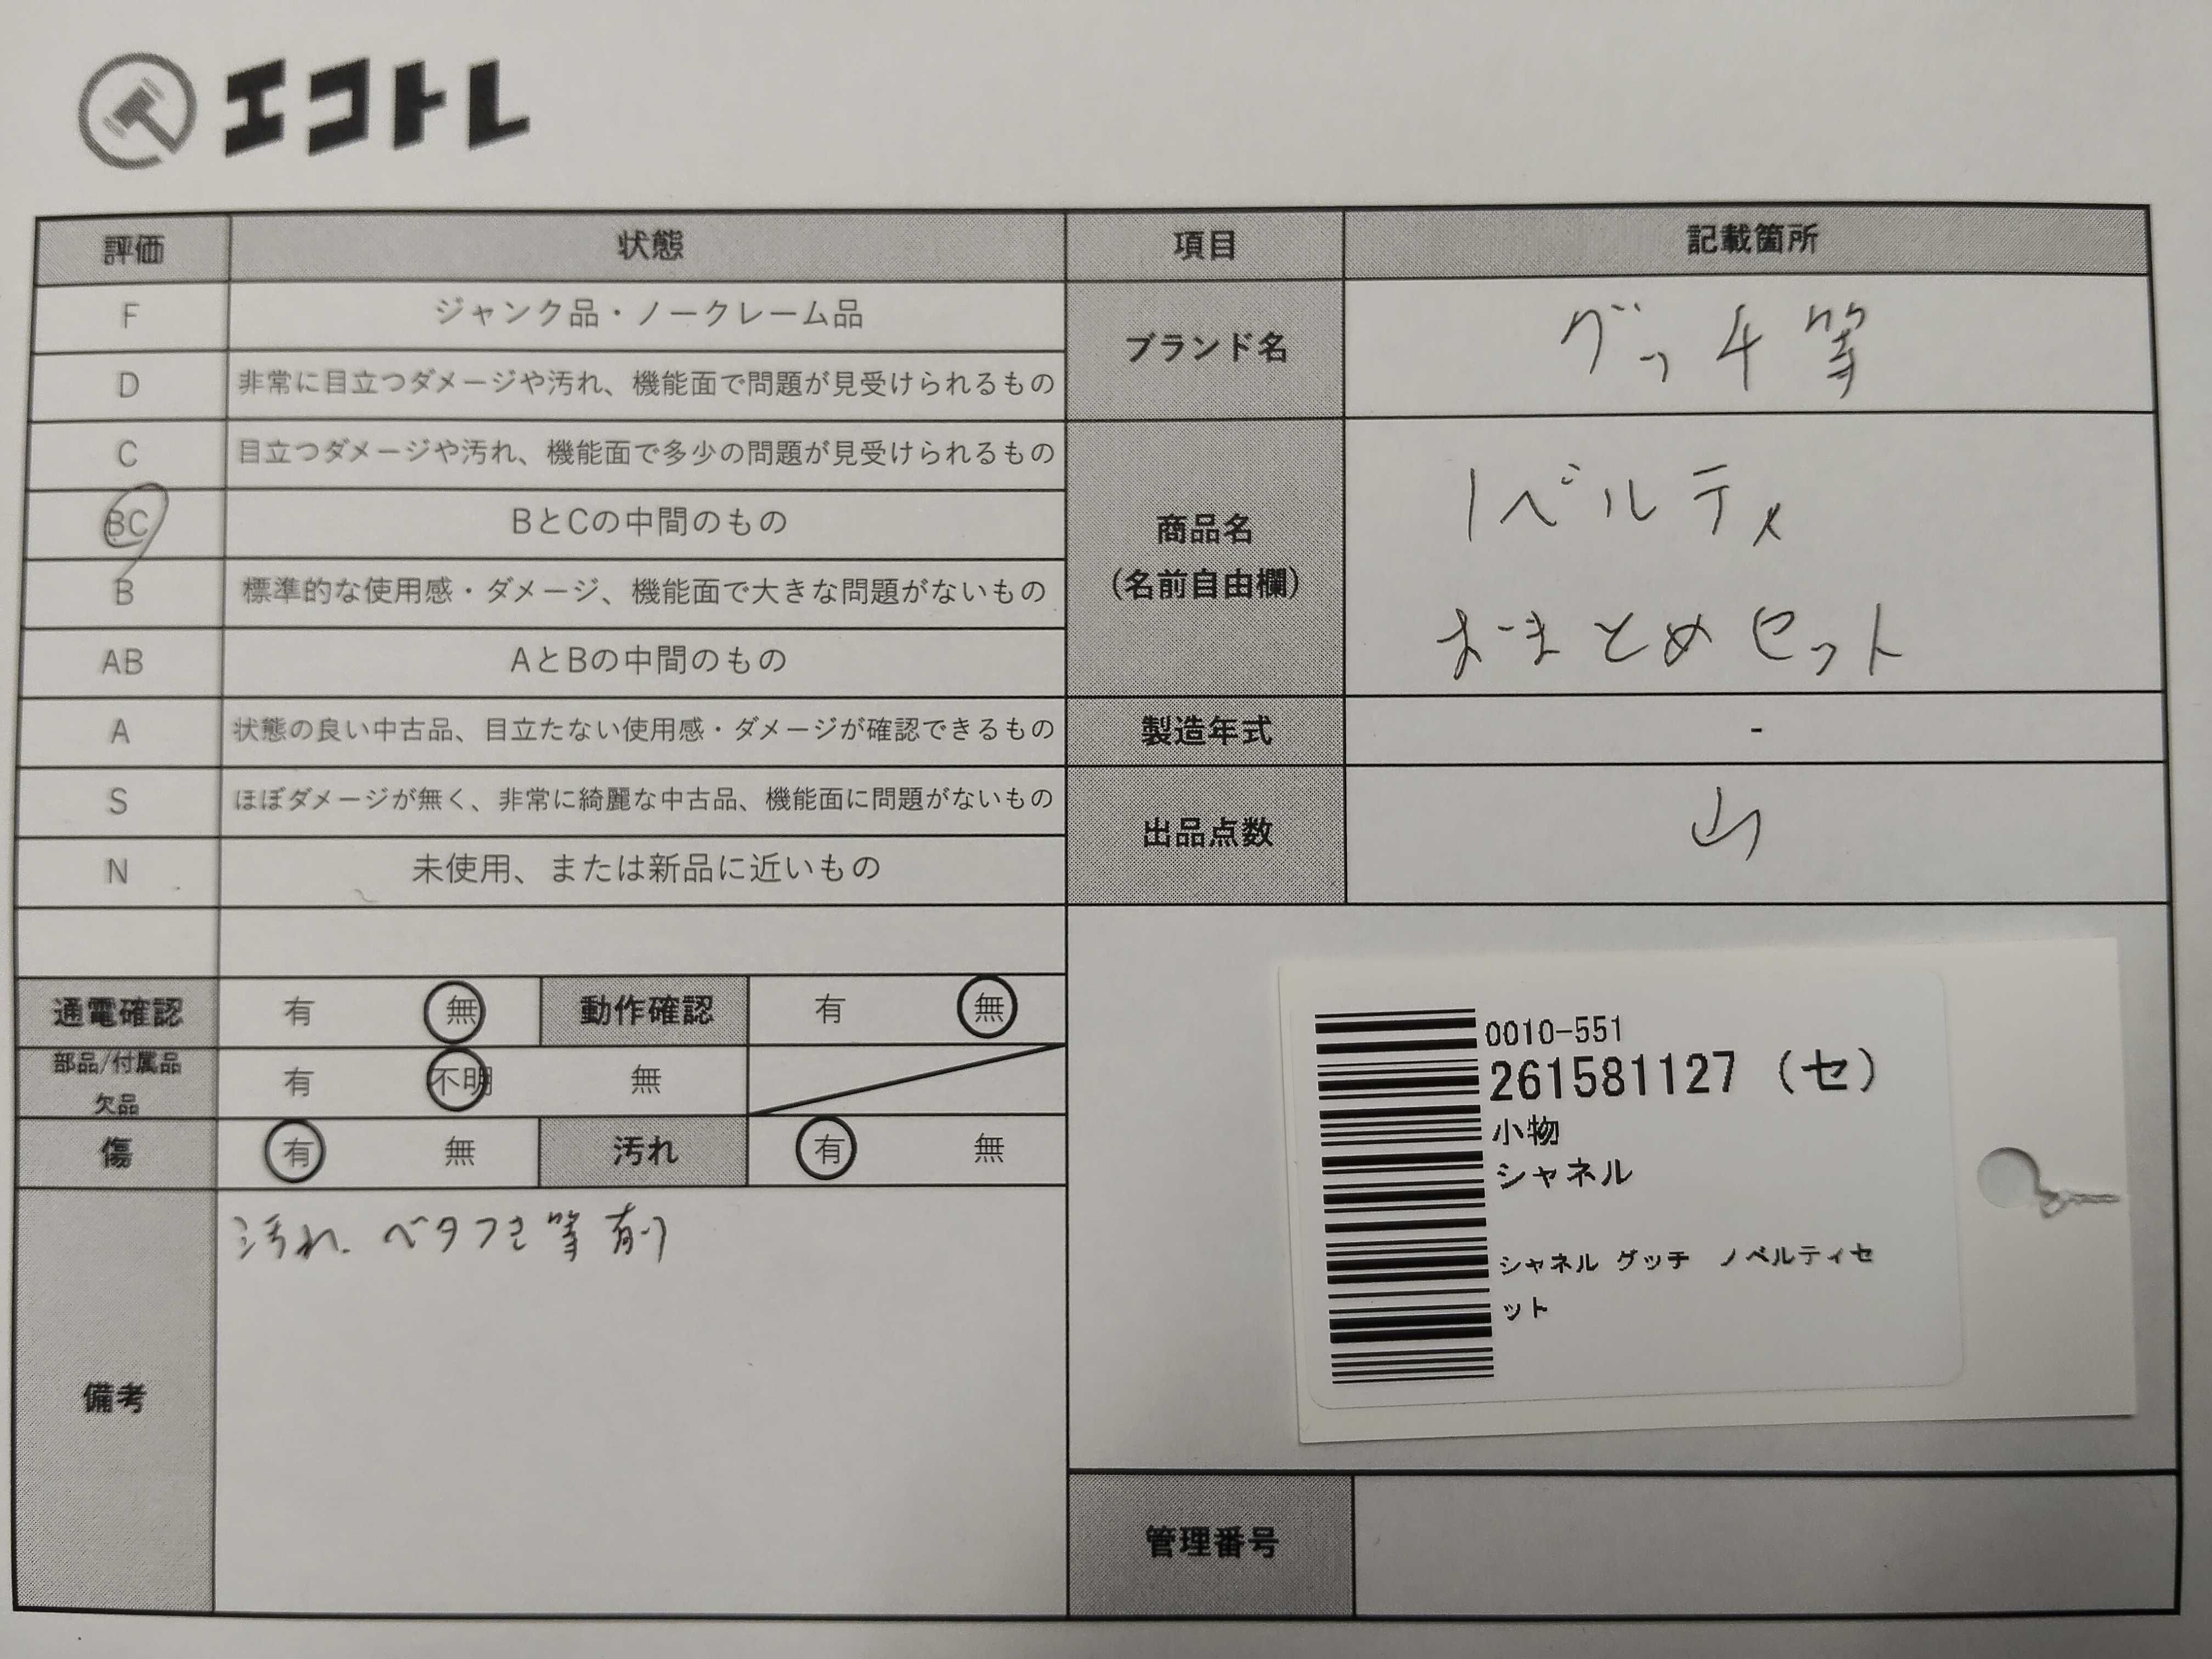 エコトレ
評価 状態 項目 記載箇所
F ジャンク品・ノークレーム品
D 非常に目立つダメージや汚れ、機能面で問題が見受けられるもの
ブランド名 グッチ等
C 目立つダメージや汚れ、機能面で多少の問題が見受けられるもの
BC BとCの中間のもの
B 標準的な使用感・ダメージ、機能面で大きな問題がないもの
AB AとBの中間のもの
商品名
(名前自由欄)
ノベルティ
おまとめセット
A 状態の良い中古品、目立たない使用感・ダメージが確認できるもの
製造年式 -
S ほぼダメージが無く、非常に綺麗な中古品、機能面に問題がないもの
N 未使用、または新品に近いもの
出品点数 山
通電確認 有 無 動作確認 有 無
部品/付属品
欠品
有 不明 無
傷 有 無 汚れ 有 無
備考
汚れ、ベタつき等有り
0010-551
261581127 (セ)
小物
シャネル
シャネル グッチ ノベルティセ
ット
管理番号